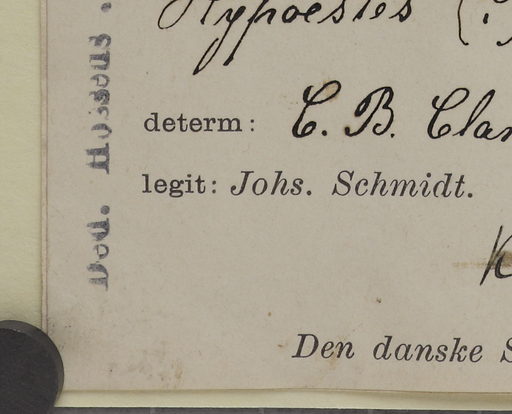 Hypoestes (?)
determ: C. B. Clar
legit: Johs. Schmidt.
K
Den danske S
Ded. Hosseus.